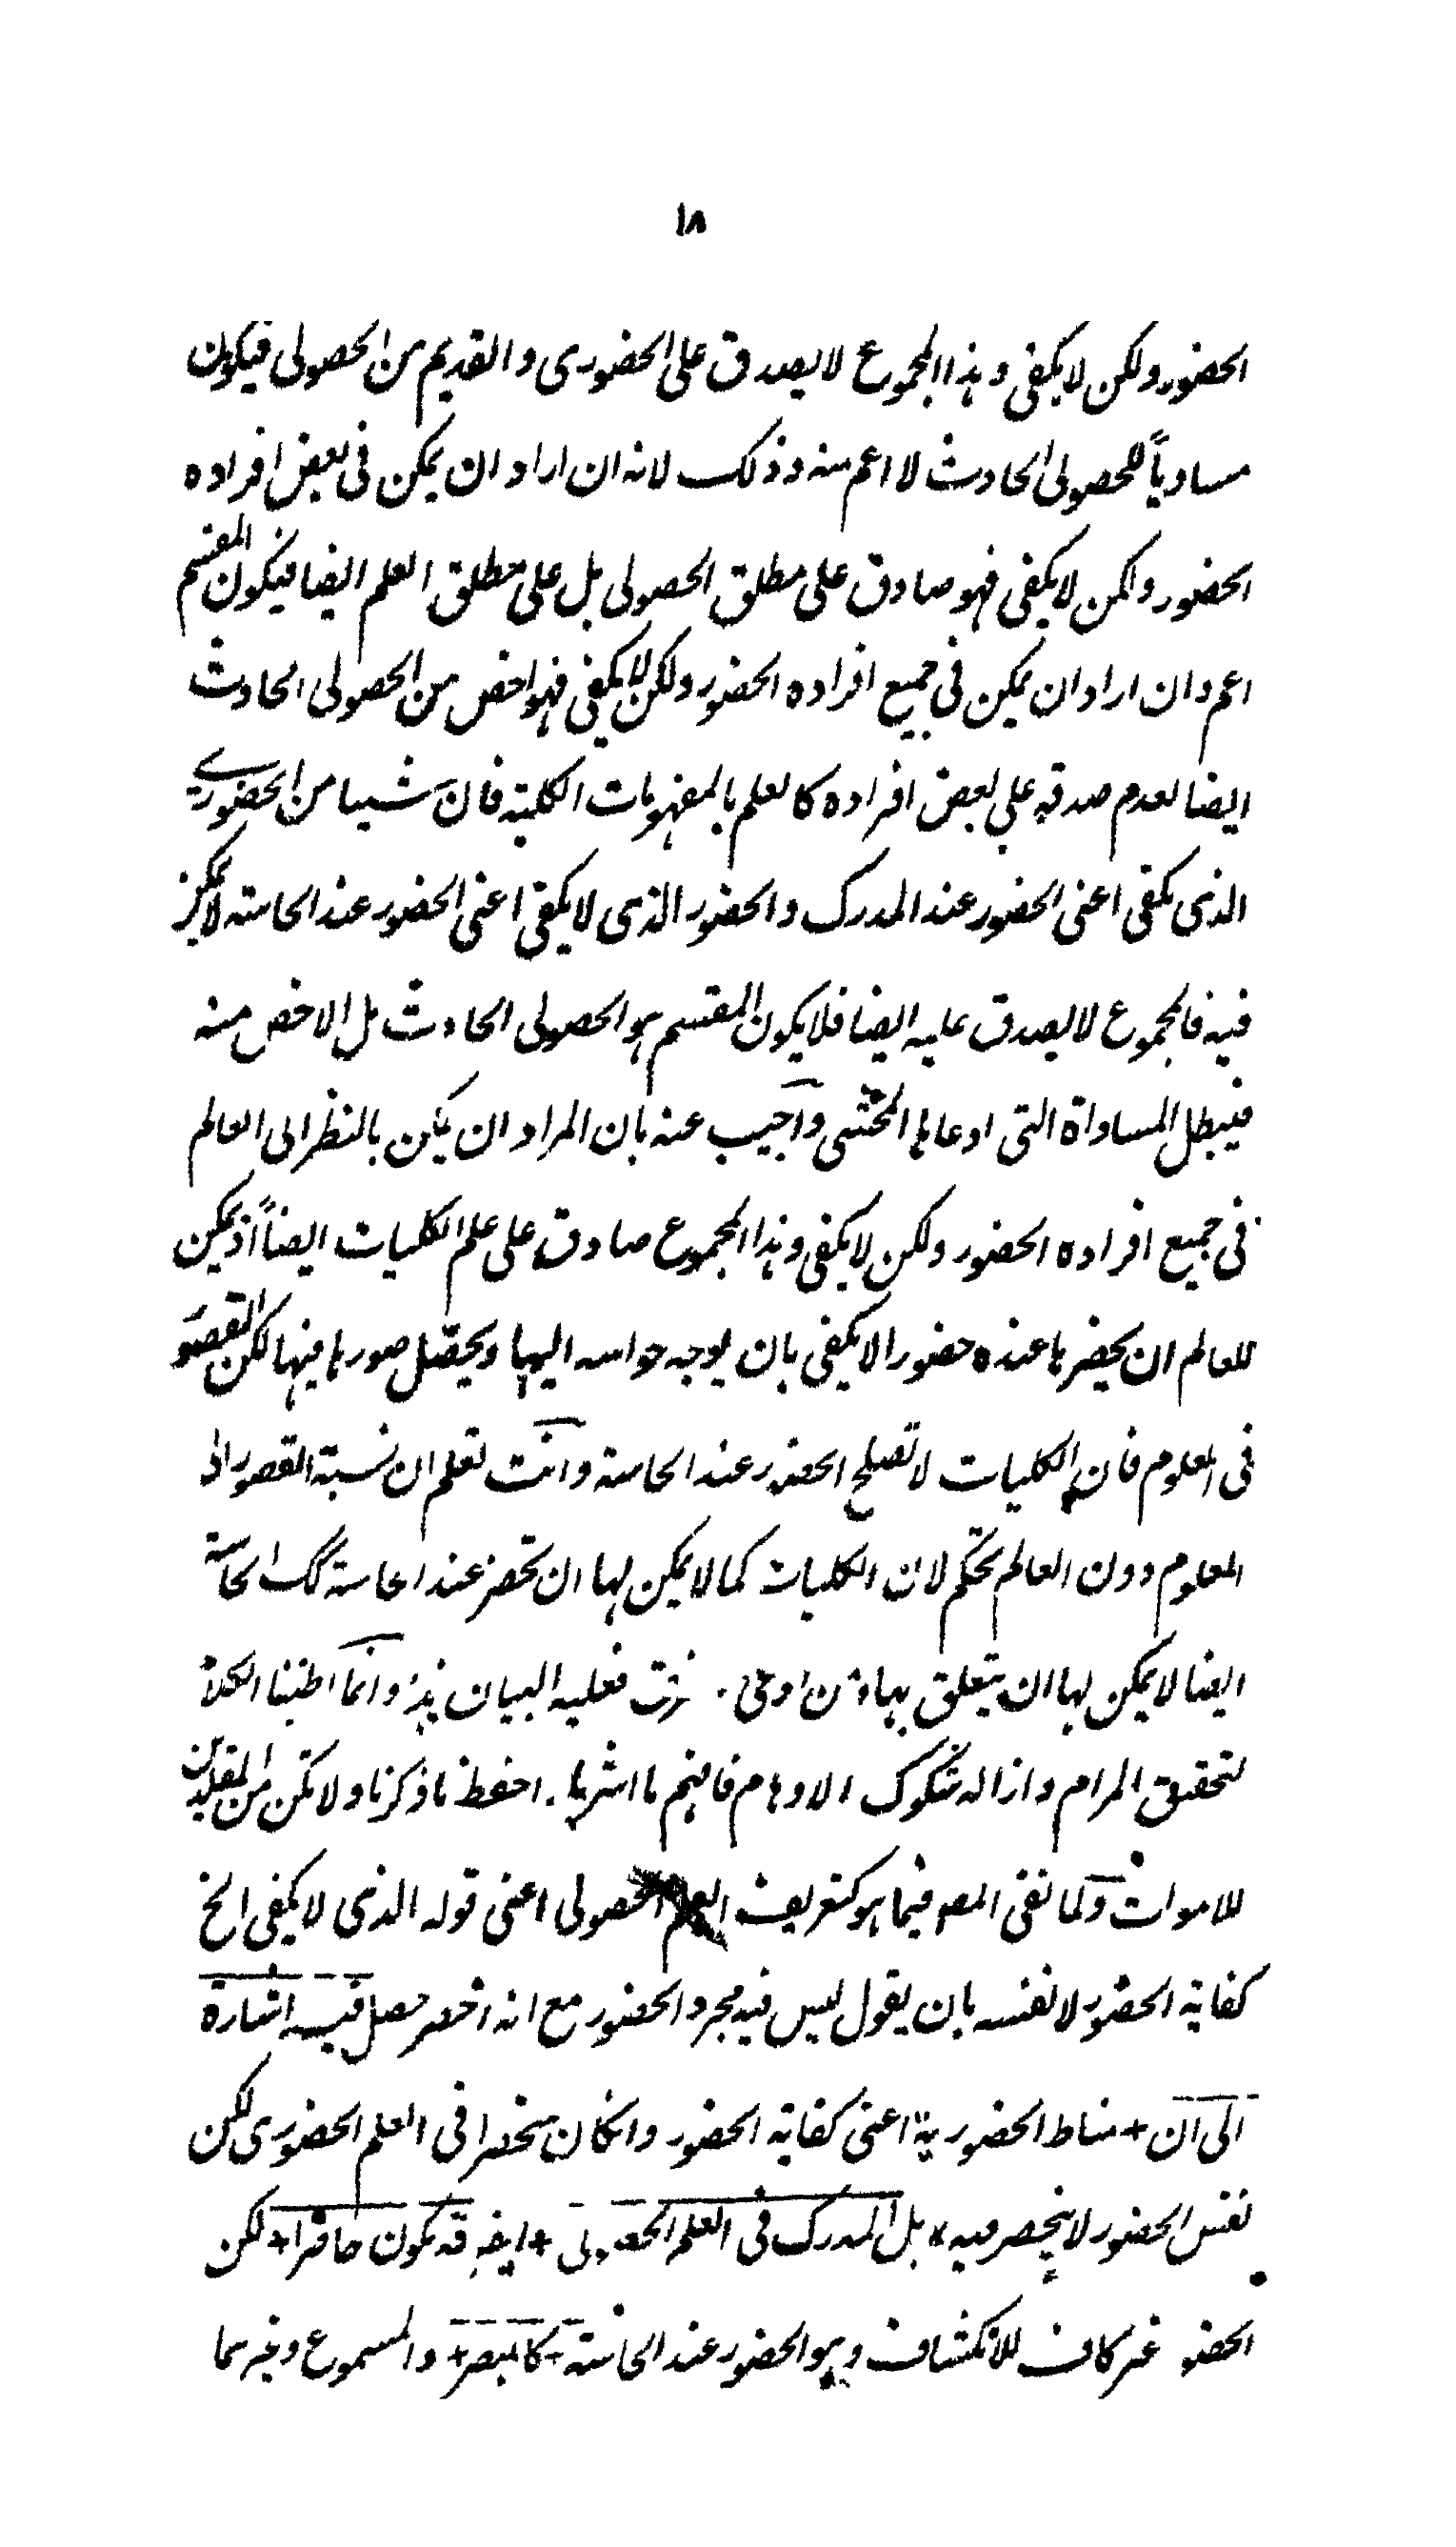 ١٨
الحضور ولكن لا يكفى وهذا المجموع لا يصدق على الحضورى والقديم من الحصولى فيكون
مساوياً للحصولى الحادث لا اعم منه وذلك لانه ان اراد ان يمكن فى بعض افراده
الحضور ولكن لا يكفى فهو صادق على مطلق الحصولى بل على مطلق العلم ايضا فيكون المقسم
اعم وان اراد ان يمكن فى جميع افراده الحضور ولكن لا يكفى فهو اخص من الحصولى الحادث
ايضا لعدم صدقه على بعض افراده كالعلم بالمفهومات الكلية فان شيئا من الحضورى
الذى يكفى اعنى الحضور عند المدرك والحضور الذى لا يكفى اعنى الحضور عند الحاسة لا يمكن
فيه فالمجموع لا يصدق عليه ايضا فلا يكون المقسم هو الحصولى الحادث بل الاخص منه
فيبطل المساواة التى ادعاها المحشى واجيب عنه بان المراد ان يمكن بالنظر الى العالم
فى جميع افراده الحضور ولكن لا يكفى وهذا المجموع صادق على علم الكليات ايضاً اذ يمكن
للعالم ان يحضرها عنده حضورا لا يكفى بان يوجه حواسه اليها ويحصّل صورها فيها لكن القصور
فى المعلوم فان الكليات لا تصلح الحضور عند الحاسة وانت تعلم ان نسبة القصور الى
المعلوم دون العالم تحكم لان الكليات كما لا يمكن لها ان تحضر عند الحاسة كك الحاسة
ايضا لا يمكن لها ان يتعلق بها ومن ادعى فعليه البيان هذا وانما اطنبنا الكلام
لتحقيق المرام وازالة شكوك الاوهام فافهم ما اشرنا. احفظ ما ذكرنا ولا تكن من المقلدين
للاموات ولما نفى المصـ فيما هو كتعريف العلم الحصولى اعنى قوله الذى لا يكفى الخ
كفاية الحضور لا نفسه بان يقول ليس فيه مجرد الحضور مع انه اخصر حصل فيه اشارة
الى ان + مناط الحضورية اعنى كفاية الحضور وانكان منحصرا فى العلم الحضورى لكن
نفس الحضور لا ينحصر فيه * بل المدرك فى العلم الحصولى + ايضا قد يكون حاضرا + لكن
الحضور غير كاف للانكشاف وهو الحضور عند الحاسة + كالمبصر + والمسموع وغيرهما